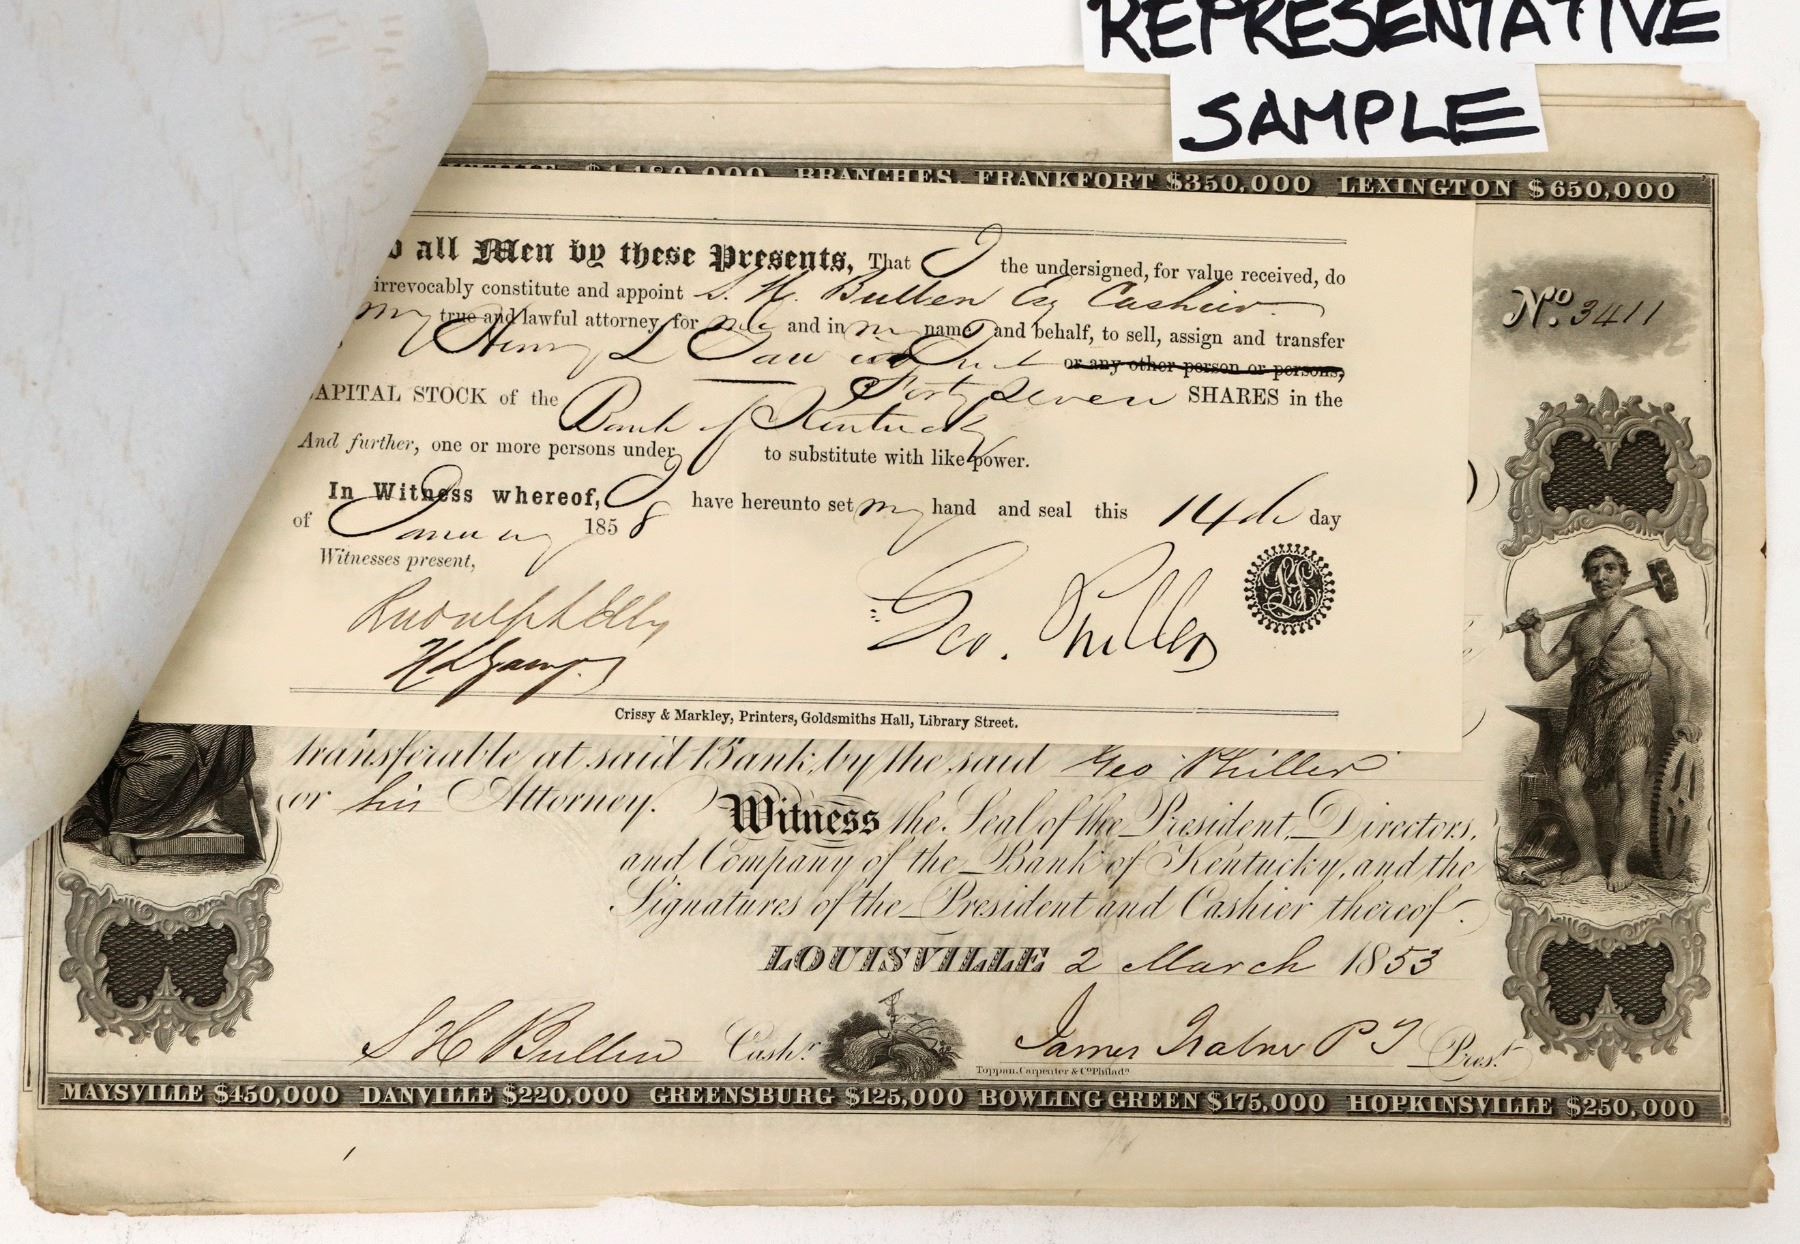 REPRESENTATIVE
SAMPLE
$1,180,000 BRANCHES, FRANKFORT $350,000 LEXINGTON $650,000
No. 3411
all Men by these Presents, That I the undersigned, for value received, do
irrevocably constitute and appoint S. H. Bullen Esq Cashier
my true and lawful attorney, for me and in my name and behalf, to sell, assign and transfer
Henry L or any other person or persons,
Forty seven SHARES in the
CAPITAL STOCK of the Bank of Kentucky
And further, one or more persons under to substitute with like power.
In Witness whereof, I have hereunto set my hand and seal this 14th day
of January 1858
Witnesses present,
Geo. Philler
Crissy & Markley, Printers, Goldsmiths Hall, Library Street.
transferable at said Bank, by the said Geo Philler
or his Attorney. Witness the Seal of the President, Directors,
and Company of the Bank of Kentucky, and the
Signatures of the President and Cashier thereof.
LOUISVILLE 2 March 1853
S H Bullen Cashr. James Trabue P T Prest.
Toppan, Carpenter & Co Philada
MAYSVILLE $450,000 DANVILLE $220,000 GREENSBURG $125,000 BOWLING GREEN $175,000 HOPKINSVILLE $250,000